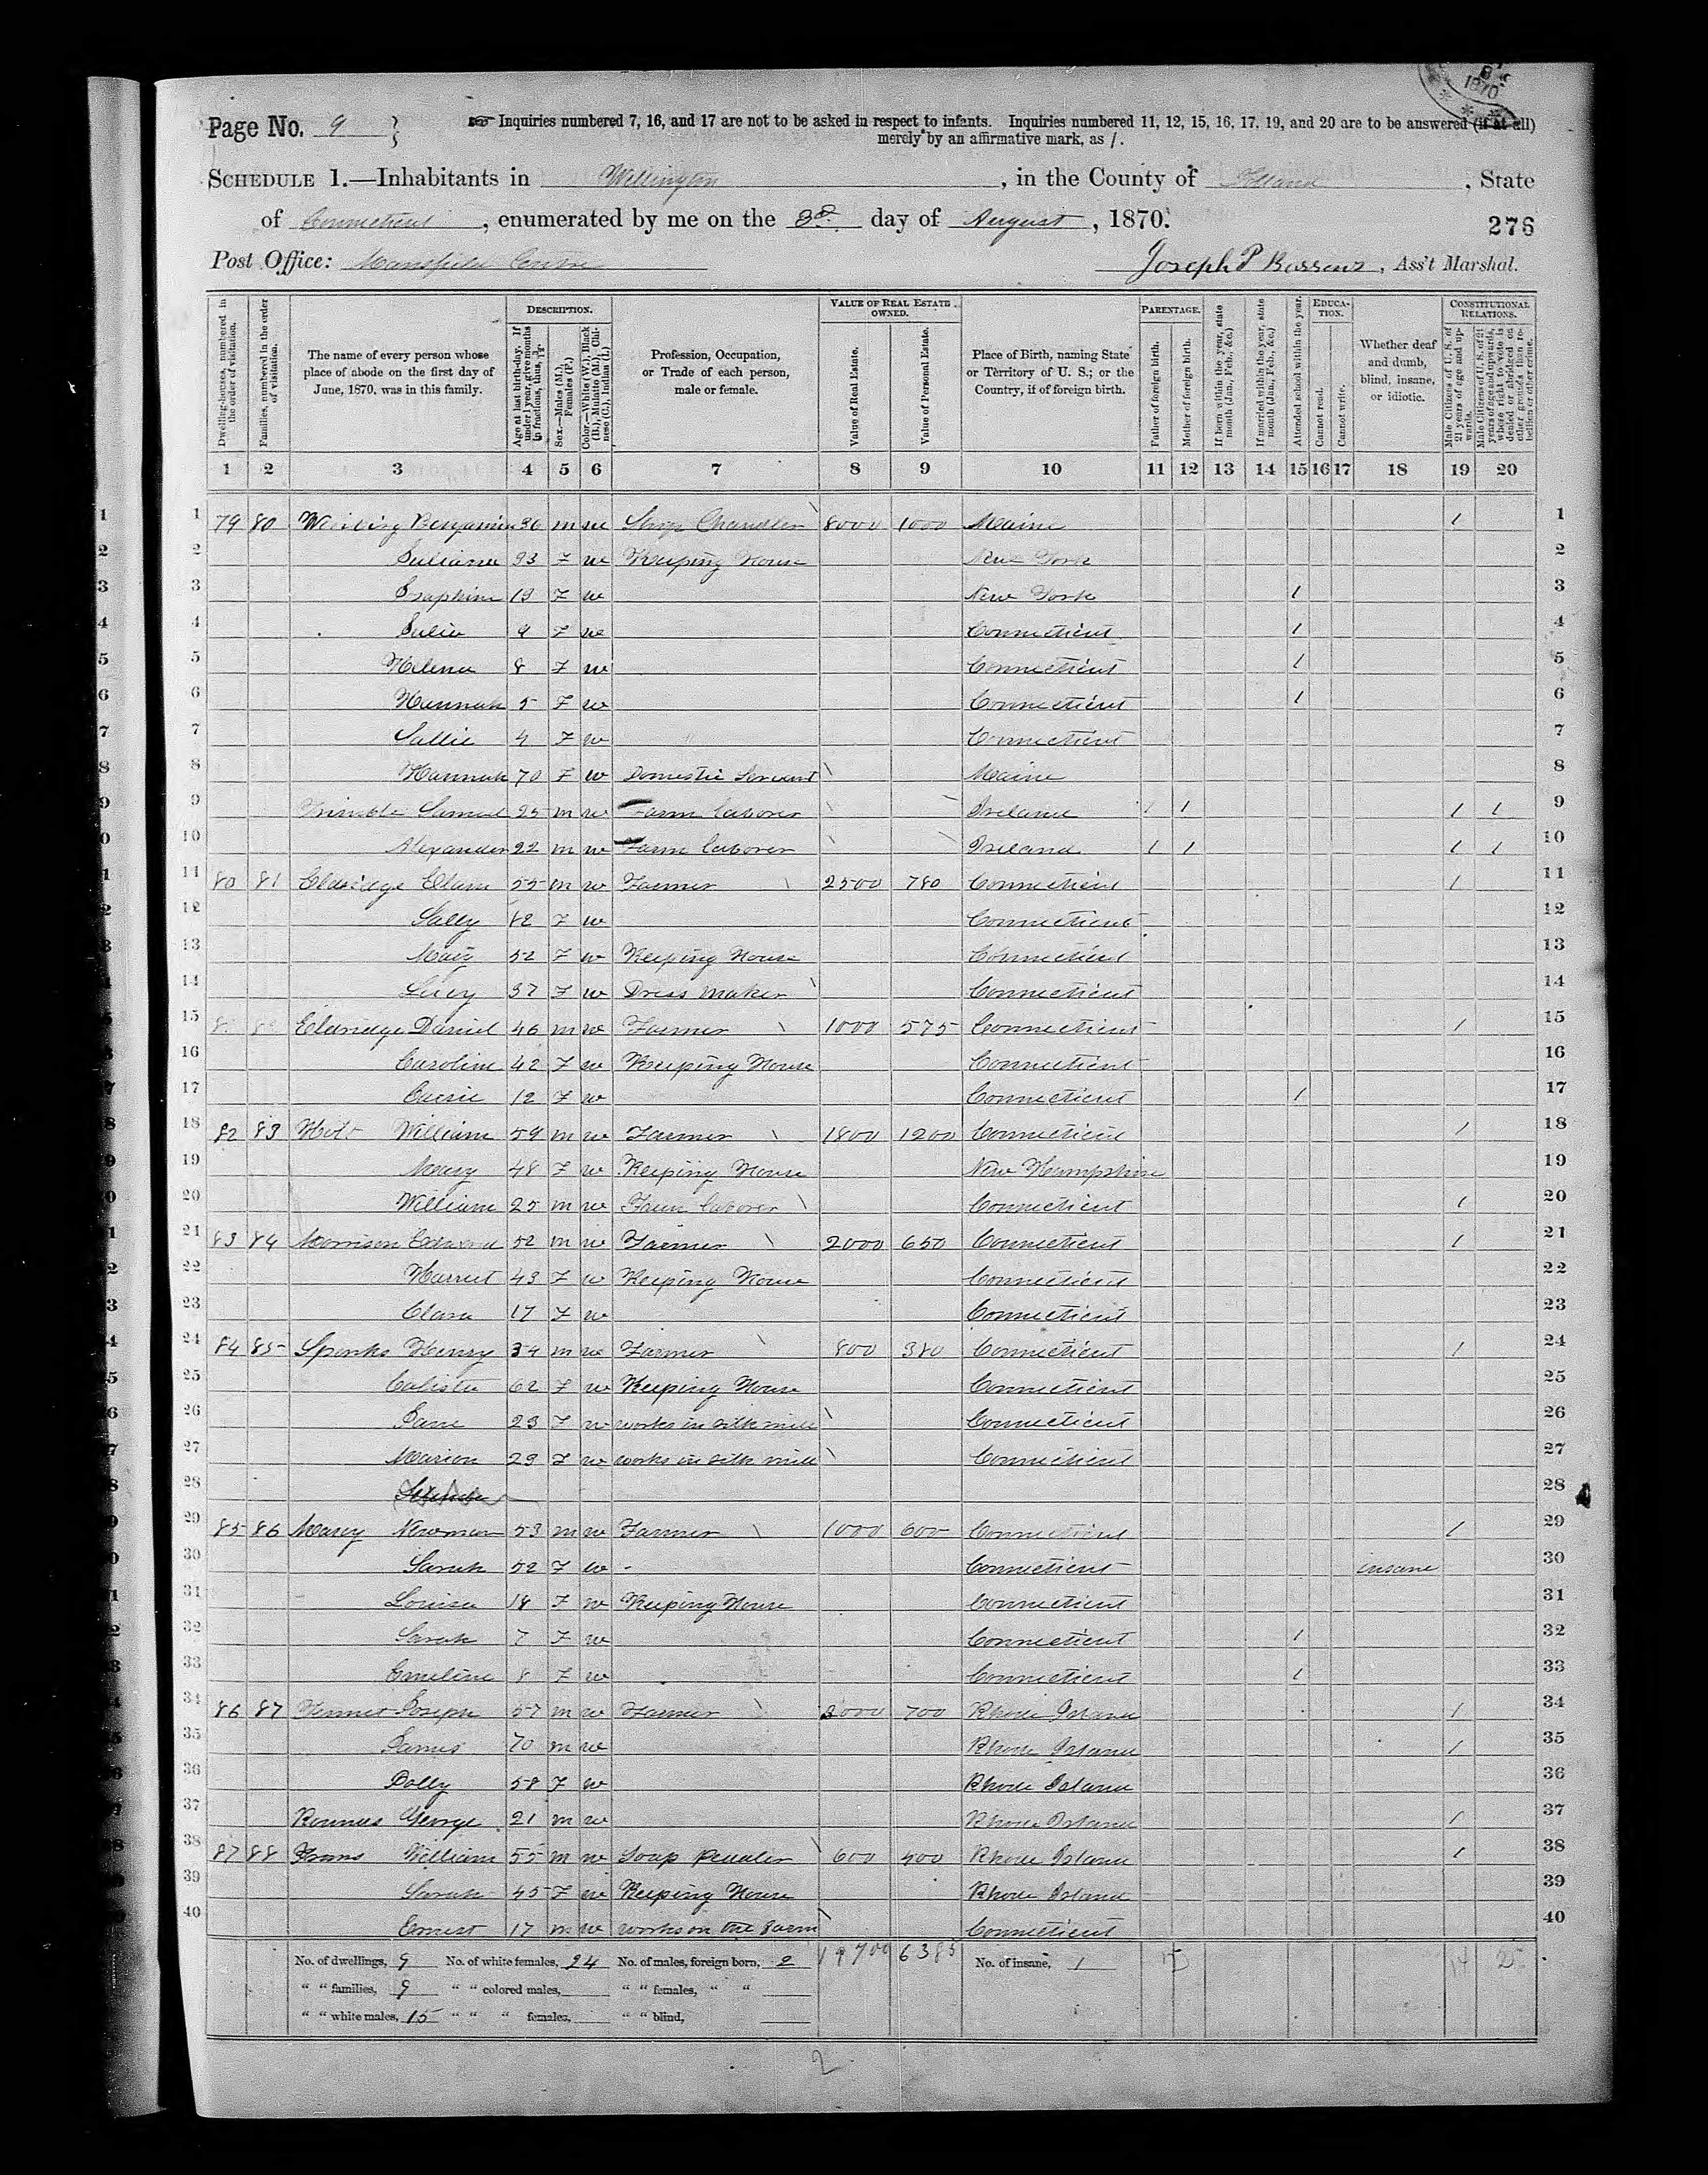 Page No. 9
Inquiries numbered 7, 16, and 17 are not to be asked in respect to infants. Inquiries numbered 11, 12, 15, 16, 17, 19, and 20 are to be answered (if at all)
merely by an affirmative mark, as /.
SCHEDULE 1.—Inhabitants in Willington, in the County of Tolland, State
of Connecticut, enumerated by me on the 3d day of August, 1870.
276
Post Office: Mansfield Centre
Joseph P , Ass't Marshal.
1870
Dwelling-houses, numbered in the order of visitation.
Families, numbered in the order of visitation.
The name of every person whose place of abode on the first day of June, 1870, was in this family.
DESCRIPTION.
Age at last birth-day. If under 1 year, give months in fractions, thus, 3/12
Sex.—Males (M.), Females (F.)
Color.—White (W.), Black (B.), Mulatto (M.), Chinese (C.), Indian (I.)
Profession, Occupation, or Trade of each person, male or female.
VALUE OF REAL ESTATE OWNED.
Value of Real Estate.
Value of Personal Estate.
Place of Birth, naming State or Territory of U. S.; or the Country, if of foreign birth.
PARENTAGE.
Father of foreign birth.
Mother of foreign birth.
If born within the year, state month (Jan., Feb., &c.)
If married within the year, state month (Jan., Feb., &c.)
Attended school within the year.
EDUCATION.
Cannot read.
Cannot write.
Whether deaf and dumb, blind, insane, or idiotic.
CONSTITUTIONAL RELATIONS.
Male Citizens of U. S. of 21 years of age and upwards.
Male Citizens of U. S. of 21 years of age and upwards, whose right to vote is denied or abridged on other grounds than rebellion or other crime.
1 2 3 4 5 6 7 8 9 10 11 12 13 14 15 16 17 18 19 20
1 79 80 Benjamin 36 m w Ship Chandler 8000 1000 Maine / 1
2 Juliana 33 F w Keeping House New York 2
3 Josephine 13 F w New York / 3
4 Julia 9 F w Connecticut / 4
5 Helena 8 F w Connecticut / 5
6 Hannah 5 F w Connecticut / 6
7 Sallie 4 F w Connecticut 7
8 Hannah 70 F w Domestic Servant Maine 8
9 Trimble Samuel 25 m w Farm laborer Ireland / / / / 9
10 Alexander 22 m w Farm laborer Ireland / / / / 10
11 80 81 Eldridge Elam 55 m w Farmer 2500 780 Connecticut / 11
12 Sally 82 F w Connecticut 12
13 Mary 52 F w Keeping House Connecticut 13
14 Lucy 37 F w Dress maker Connecticut 14
15 Eldridge Daniel 46 m w Farmer 1000 575 Connecticut / 15
16 Caroline 42 F w Keeping House Connecticut 16
17 Carrie 12 F w Connecticut / 17
18 82 83 Holt William 59 m w Farmer 1800 1200 Connecticut / 18
19 Mary 48 F w Keeping House New Hampshire 19
20 William 25 m w Farm laborer Connecticut / 20
21 83 84 Morrison Edward 52 m w Farmer 2000 650 Connecticut / 21
22 Harriet 43 F w Keeping House Connecticut 22
23 Clara 17 F w Connecticut 23
24 84 85 Spinks Henry 34 m w Farmer 800 380 Connecticut / 24
25 Calista 62 F w Keeping House Connecticut 25
26 Jane 23 F w works in silk mill Connecticut 26
27 Marion 29 F w works in silk mill Connecticut 27
28 28
29 85 86 Marcy Newman 53 m w Farmer 1000 600 Connecticut / 29
30 Sarah 52 F w - Connecticut insane 30
31 Louisa 18 F w Keeping House Connecticut 31
32 Sarah 7 F w Connecticut / 32
33 Emeline 8 F w Connecticut / 33
34 86 87 Joseph 57 m w Farmer 2000 700 Rhode Island / 34
35 James 70 m w Rhode Island / 35
36 Polly 58 F w Rhode Island 36
37 George 21 m w Rhode Island / 37
38 87 88 William 55 m w Soap Peddler 600 400 Rhode Island / 38
39 Sarah 45 F w Keeping House Rhode Island 39
40 Ernest 17 m w works on the farm Connecticut 40
No. of dwellings, 9 No. of white females, 24 No. of males, foreign born, 2 19700 6385 No. of insane, 1 14 2
" " families, 9 " " colored males, " " females, " "
" " white males, 15 " " " females, " " blind,
2